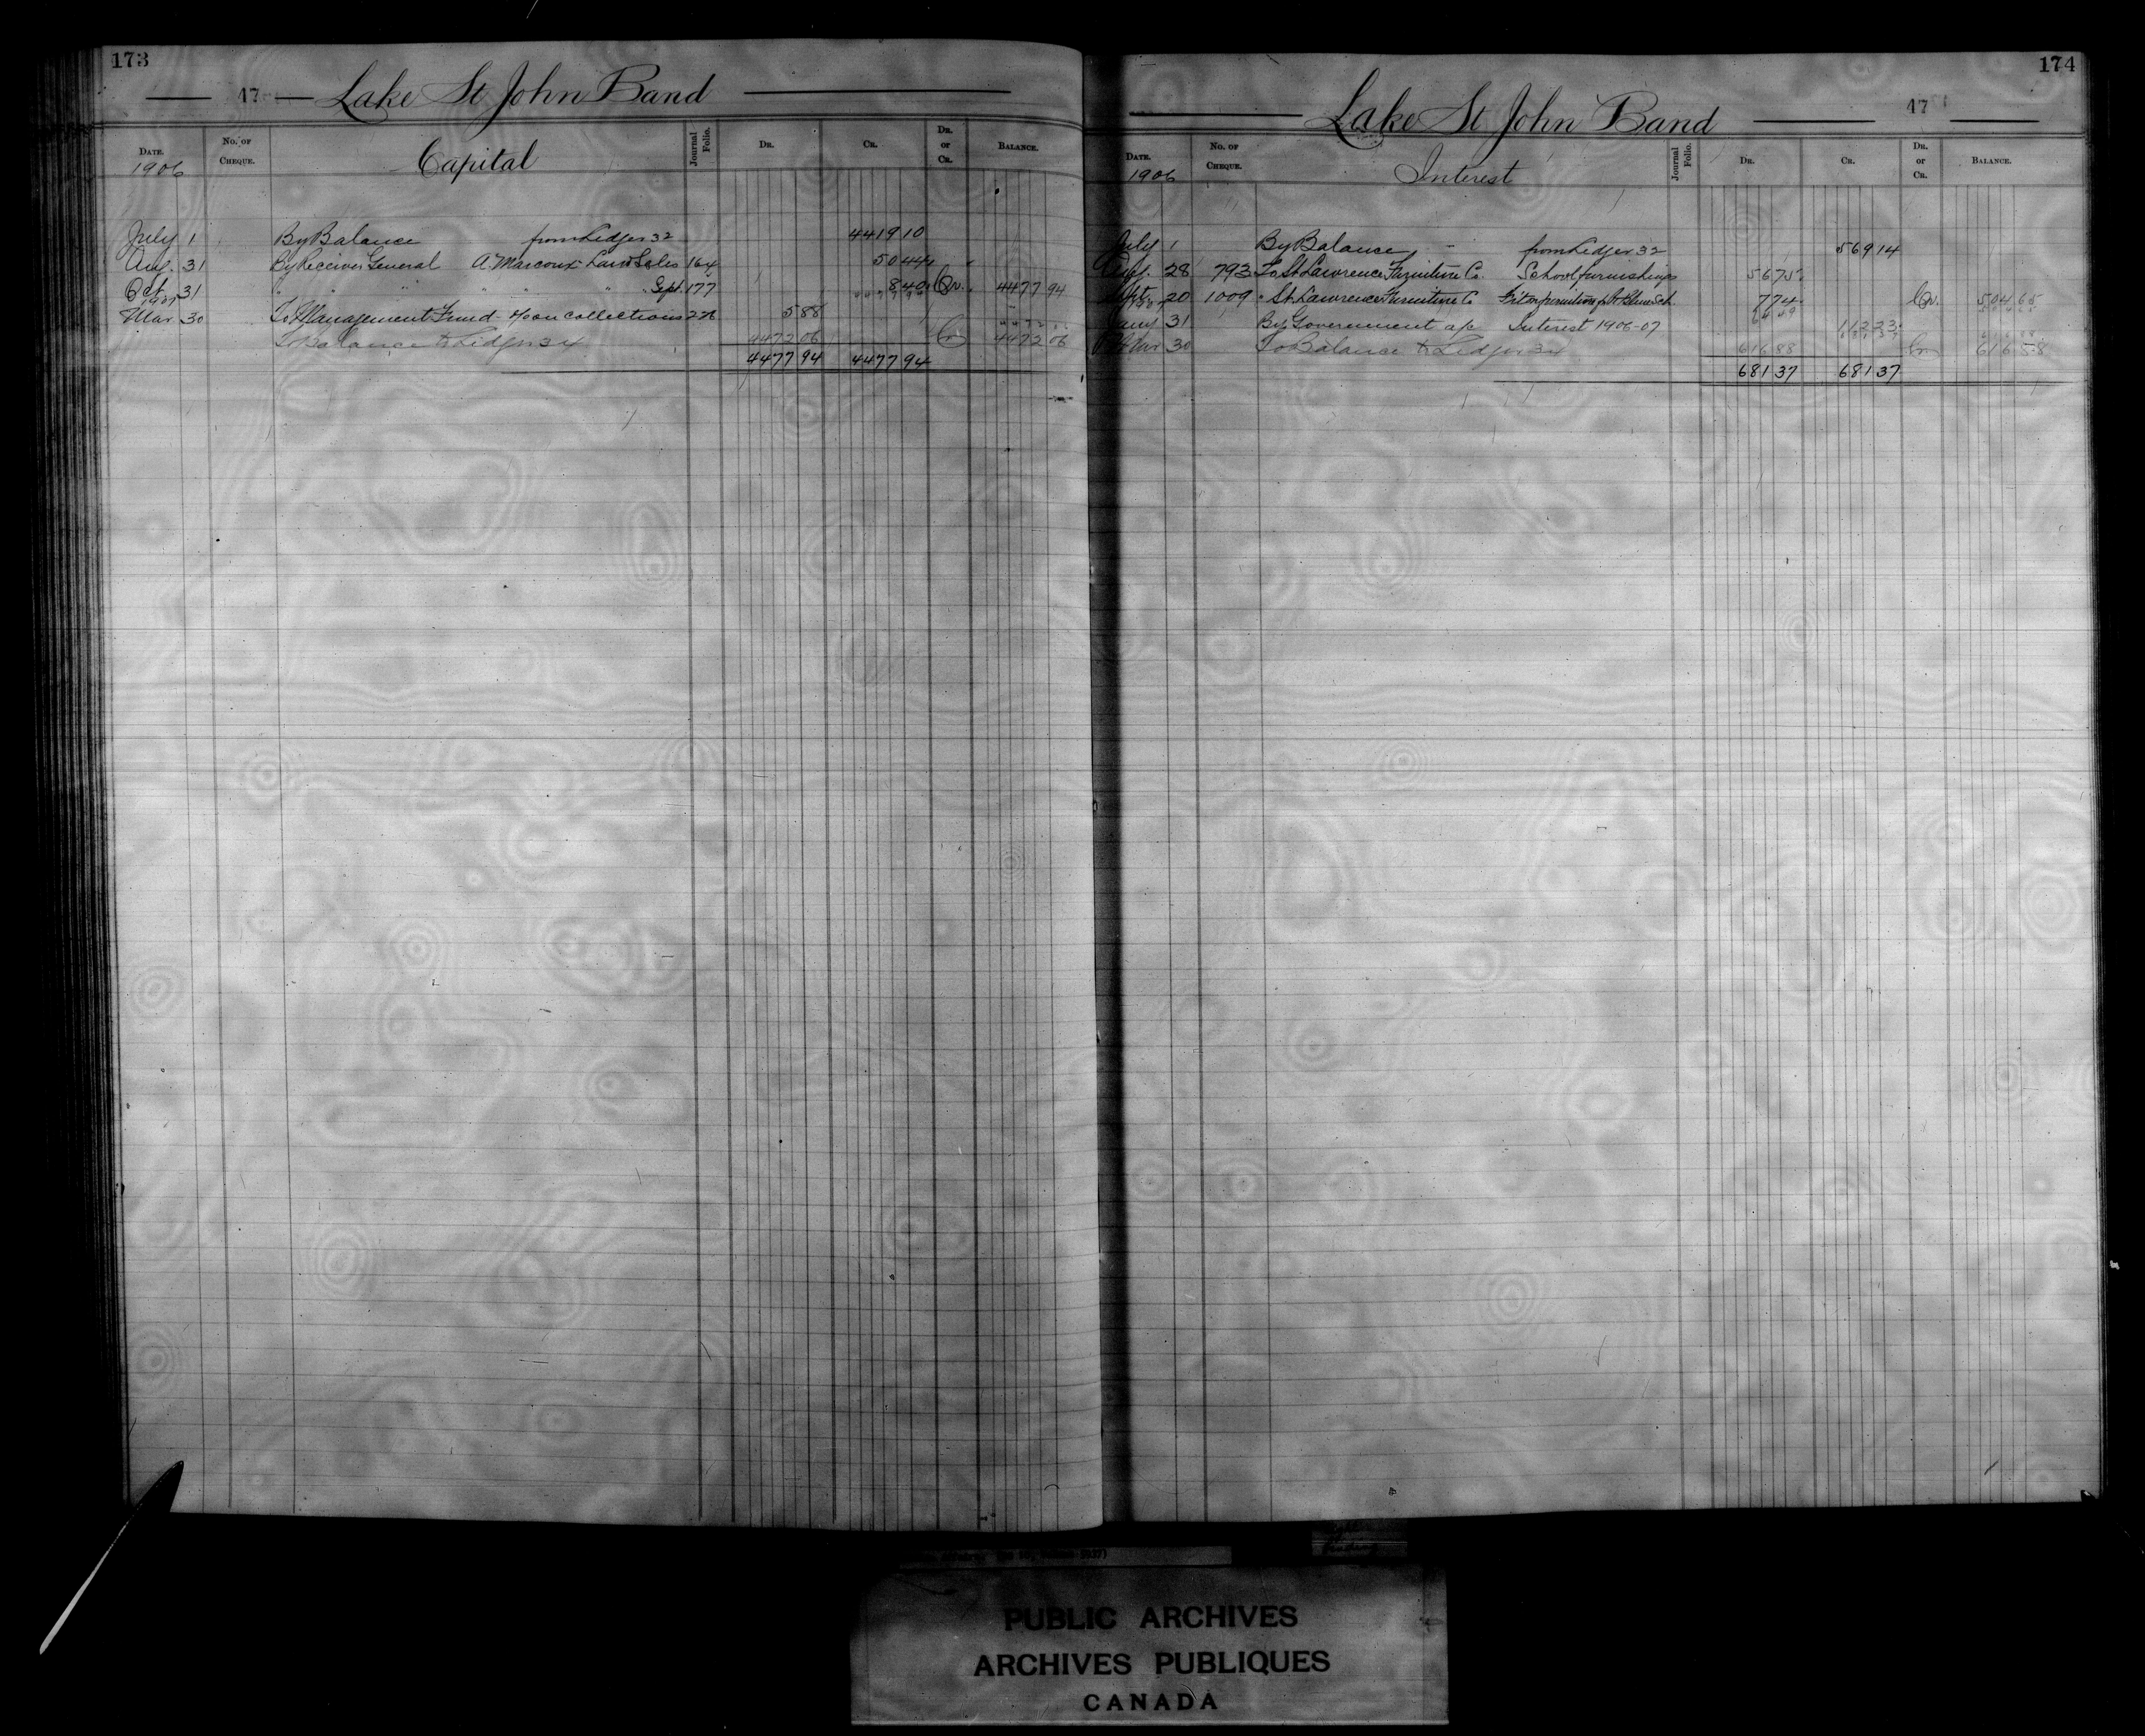 173
47 Lake St John Band
Date. No. of Cheque. Capital Journal Folio. Dr. Cr. Dr. or Cr. Balance.
1906
July 1 By Balance from Ledger 32 4419 10
Aug. 31 By Receiver General A. Marcoux Land Sales 164 50 44
Oct. 31 " " " " " " Sept. 177 8 40 Cr. 4477 94
1907
Mar 30 To Management Fund on collections 276 5 88
To Balance to Ledger 34 4472 06 Cr 4472 06
4477 94 4477 94
174
Lake St John Band 47
Date. No. of Cheque. Interest Journal Folio. Dr. Cr. Dr. or Cr. Balance.
1906
July 1 By Balance from Ledger 32 569 14
Aug. 28 793 To St. Lawrence Furniture Co. School furnishings 56 75
Sept. 20 1009 " St. Lawrence Furniture Co 7 74 Cr. 504 65
1907
Jany 31 By Government a/c Interest 1906-07 112 23
Mar 30 To Balance to Ledger 34 616 88 Cr 616 88
681 37 681 37
PUBLIC ARCHIVES
ARCHIVES PUBLIQUES
CANADA